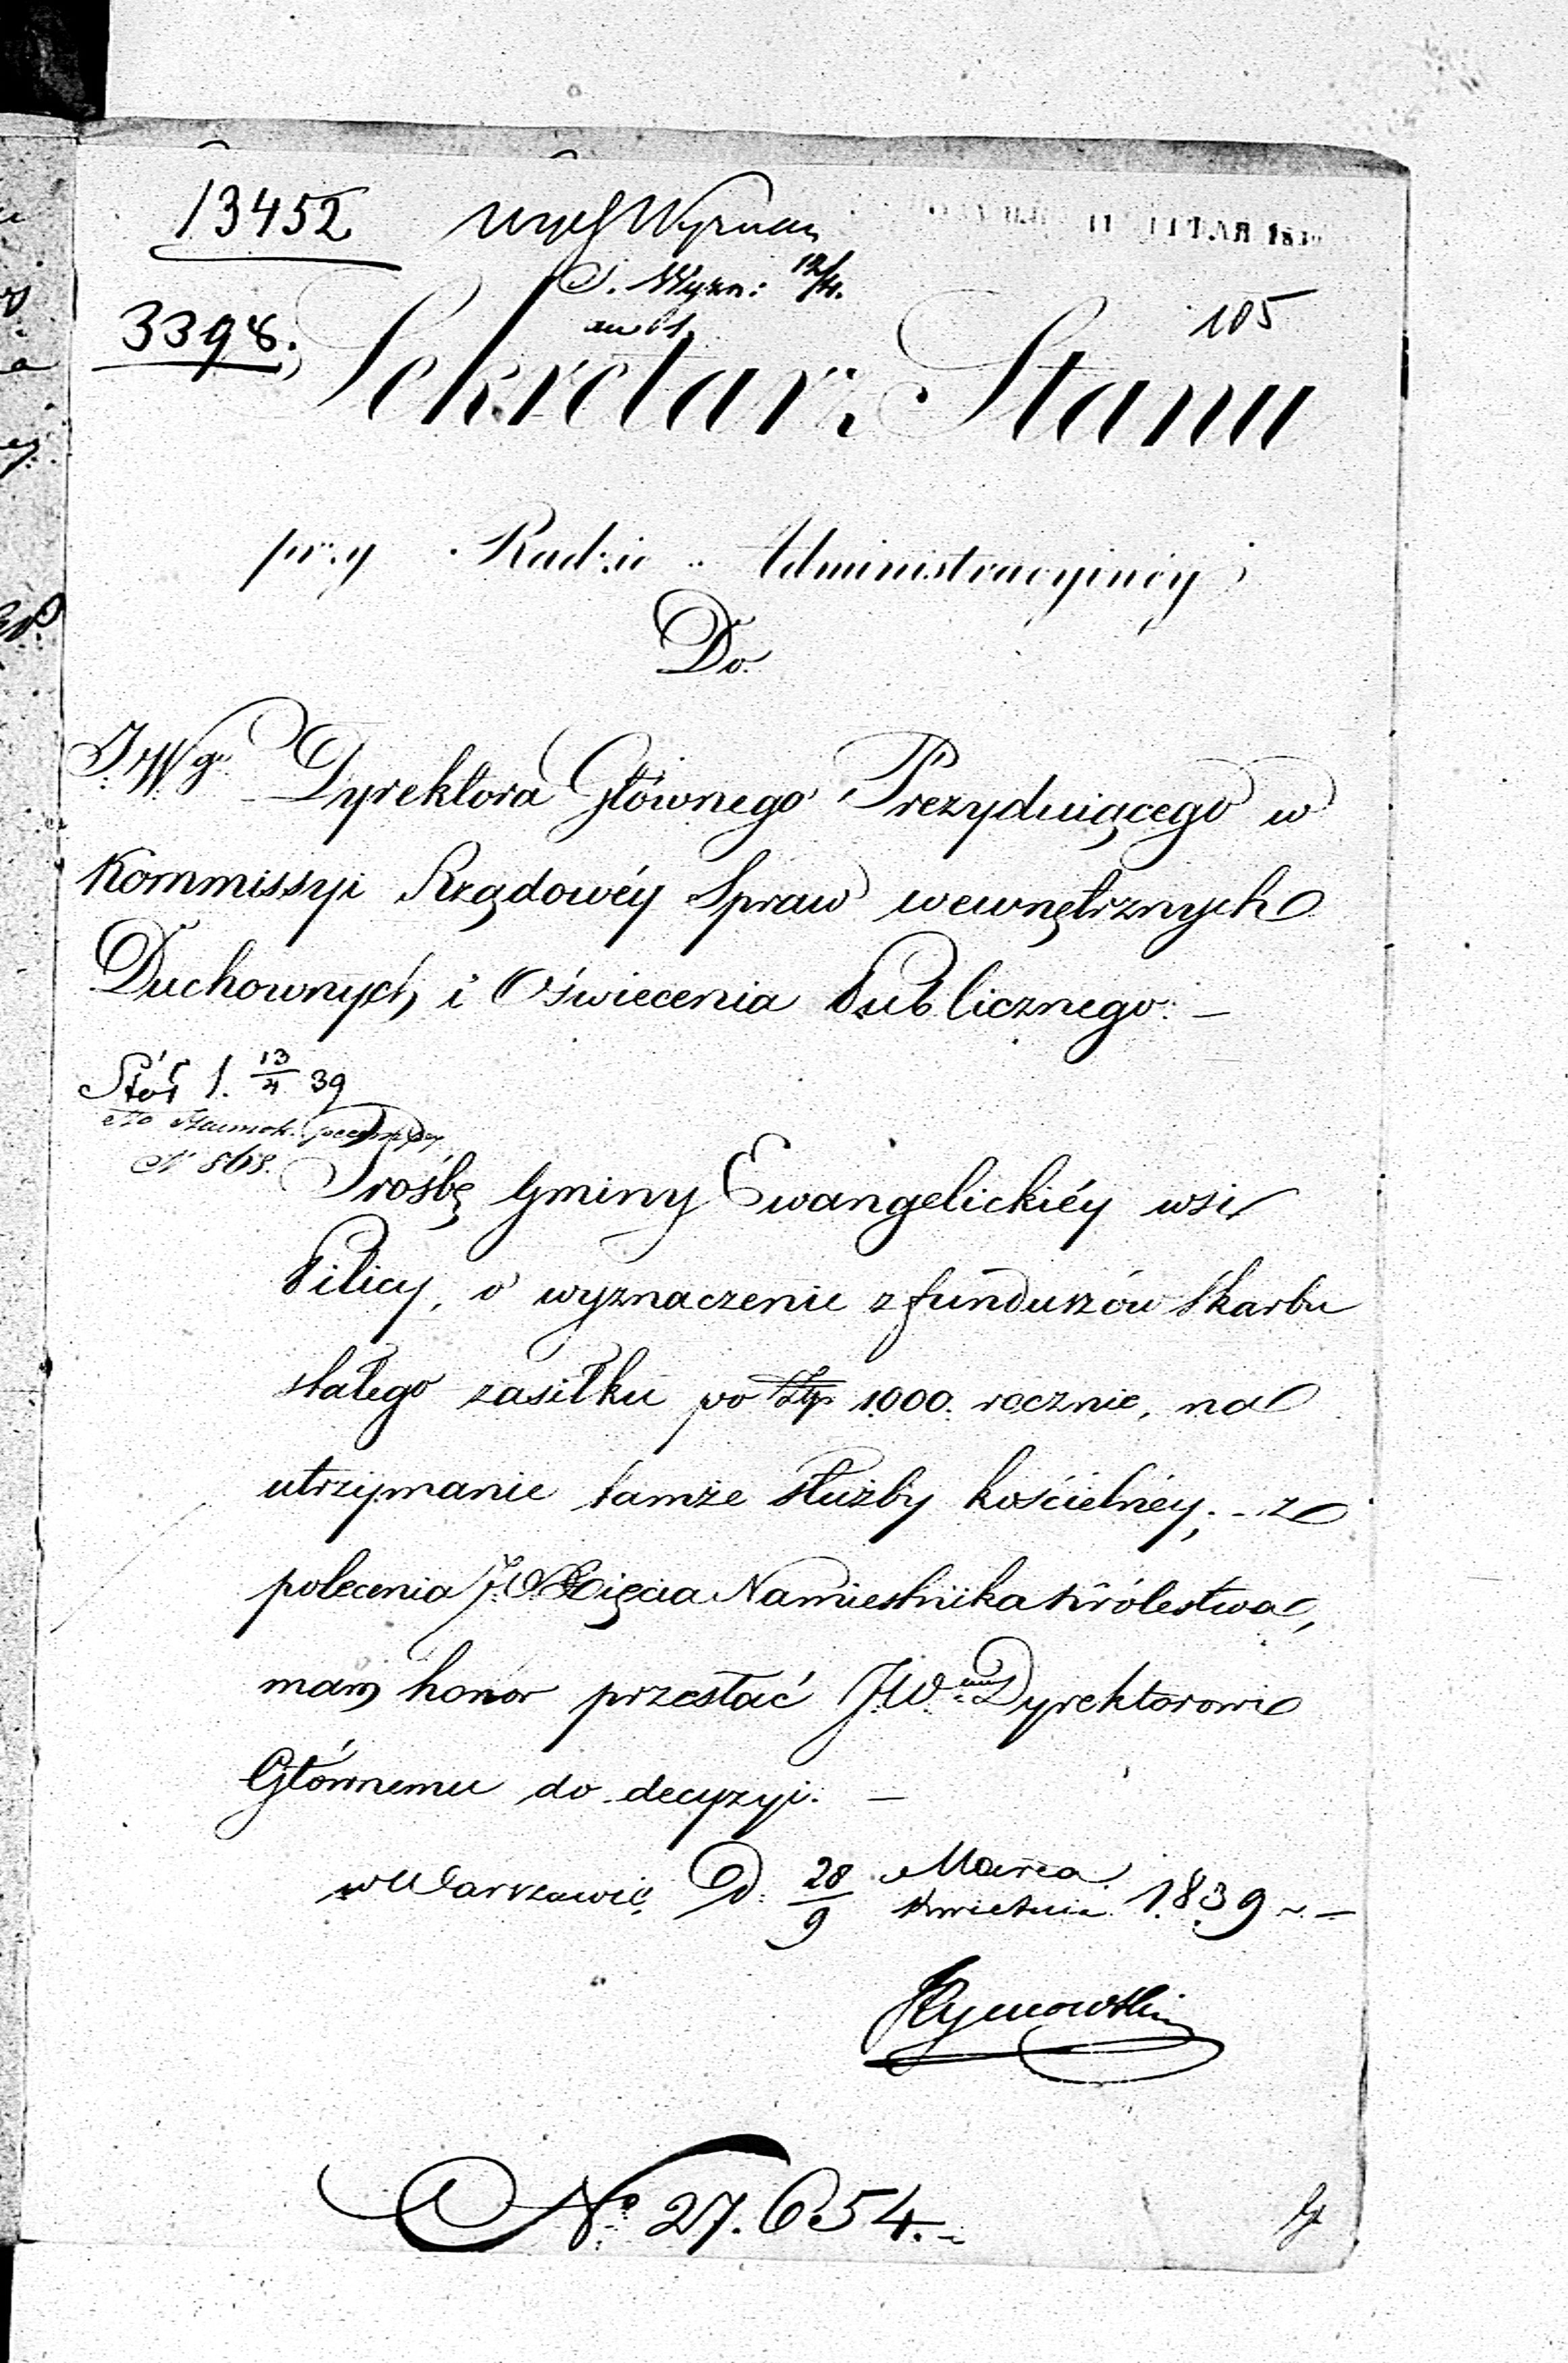 13452
S. Wyzn: 12/4.
3398.
105
Sekretarz Stanu
przy Radzie Administracyinéy
Do
JWgo Dyrektora Głównego Prezyduiącego w
Kommissyi Rządowéy Spraw wewnętrznych
Duchownych i Oświecenia Publicznego. –
13/4 39
N 868.
Prośbę Gminy Ewangelickiéy wsi
Pilicy, o wyznaczenie z funduszów Skarbu
stałego zasiłku po Złp 1000. rocznie, na
utrzymanie tamże służby kościelnéy; – z
polecenia J. O. Xięcia Namiestnika Królestwa,
mam honor przesłać J.W.mu Dyrektorowi
Głównemu do decyzyi. –
w Warszawie D. 28/9 Marca/Kwietnia 1839 –
Tymowski
No 27.654.